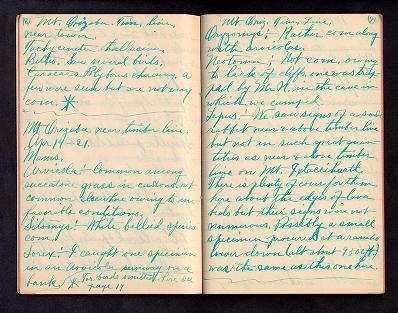 Mt. Orizaba. Tim. line,
near town.
Tachycineta thallasina
Bitta. saw several birds.
Caracara Polyborus cheriway, a
few were seen but are not very
com. *
Mt. Orizaba, near timber line.
Apr. 19-21.
Mams.
Arvicola:- Common among
succatone grass in
common elsewhere owing to un-
favorable conditions.
Sitomys:- White bellied species
com.
Sorex:- I caught one specimen
in an Arvicola runway on a
bank. (* For birds omitted here see
page 17
Mt. Oriz. Tim. Line.
Cryponys:- Rather com along
with arvicolas.
Neotoma:- Not com, owing
to lack of cliffs, one was trap-
ped by Mr. N. in the cave in
which we camped.
Lepus:- We saw signs of a small
rabbit near & above timber line
but not in such great quan-
tities as near & above timber
line on Mt. Iztaccihuatl.
There is plenty of cover for them
here about the edges of lava
beds but their signs were not
numerous. Possibly a small
specimen procured at a rancho
lower down (alt about 9500 ft)
was the same as this one here.